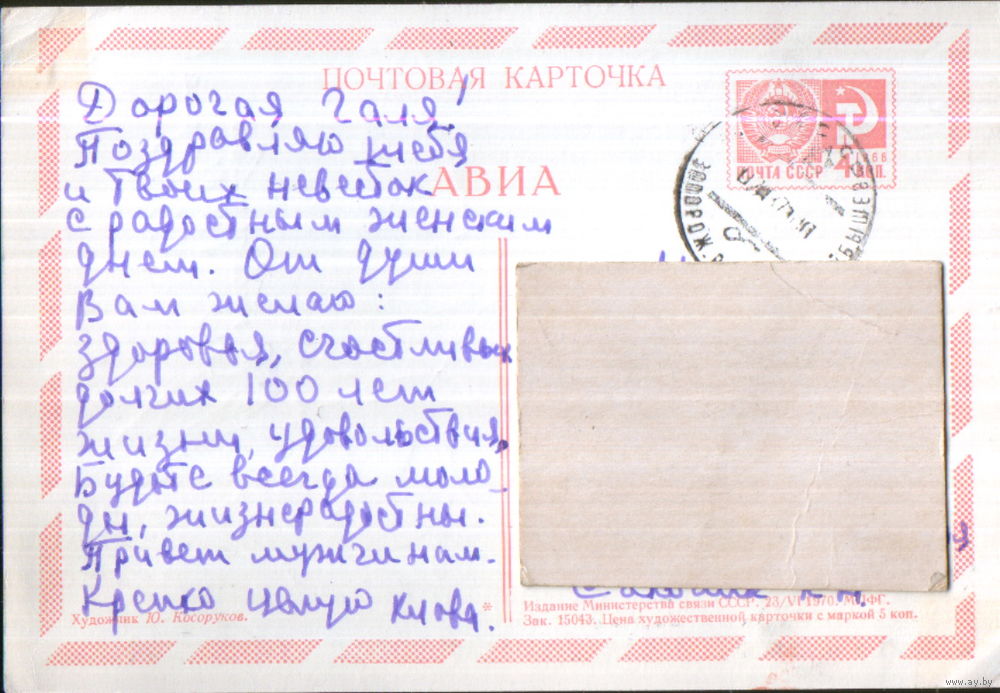 ПОЧТОВАЯ КАРТОЧКА
АВИА
Дорогая Галя!
Поздравляю тебя
и твоих невесток
с радостным женским
днем. От души
Вам желаю:
здоровья, счастливых
долгих 100 лет
жизни, удовольствия,
Будьте всегда моло-
ды, жизнерадостны.
Привет мужчинам.
Крепко целую
Художник Ю. Косоруков.
ПОЧТА СССР 4 КОП.
Издание Министерства связи СССР. 23/VI 1970. МПФГ.
Зак. 15043. Цена художественной карточки с маркой 5 коп.
www.ay.by